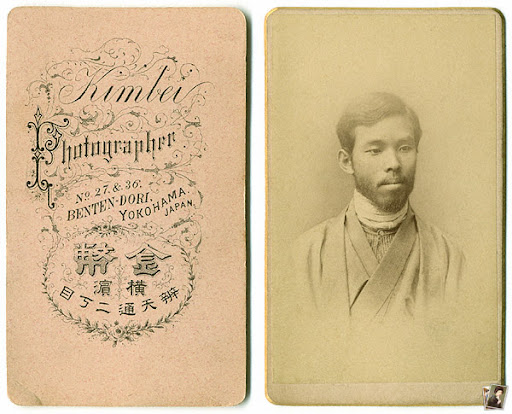 Kimbei
Photographer
No. 27. & 36.
BENTEN-DORI.
YOKOHAMA.
JAPAN.
金幣
横濱
辨天通二丁目